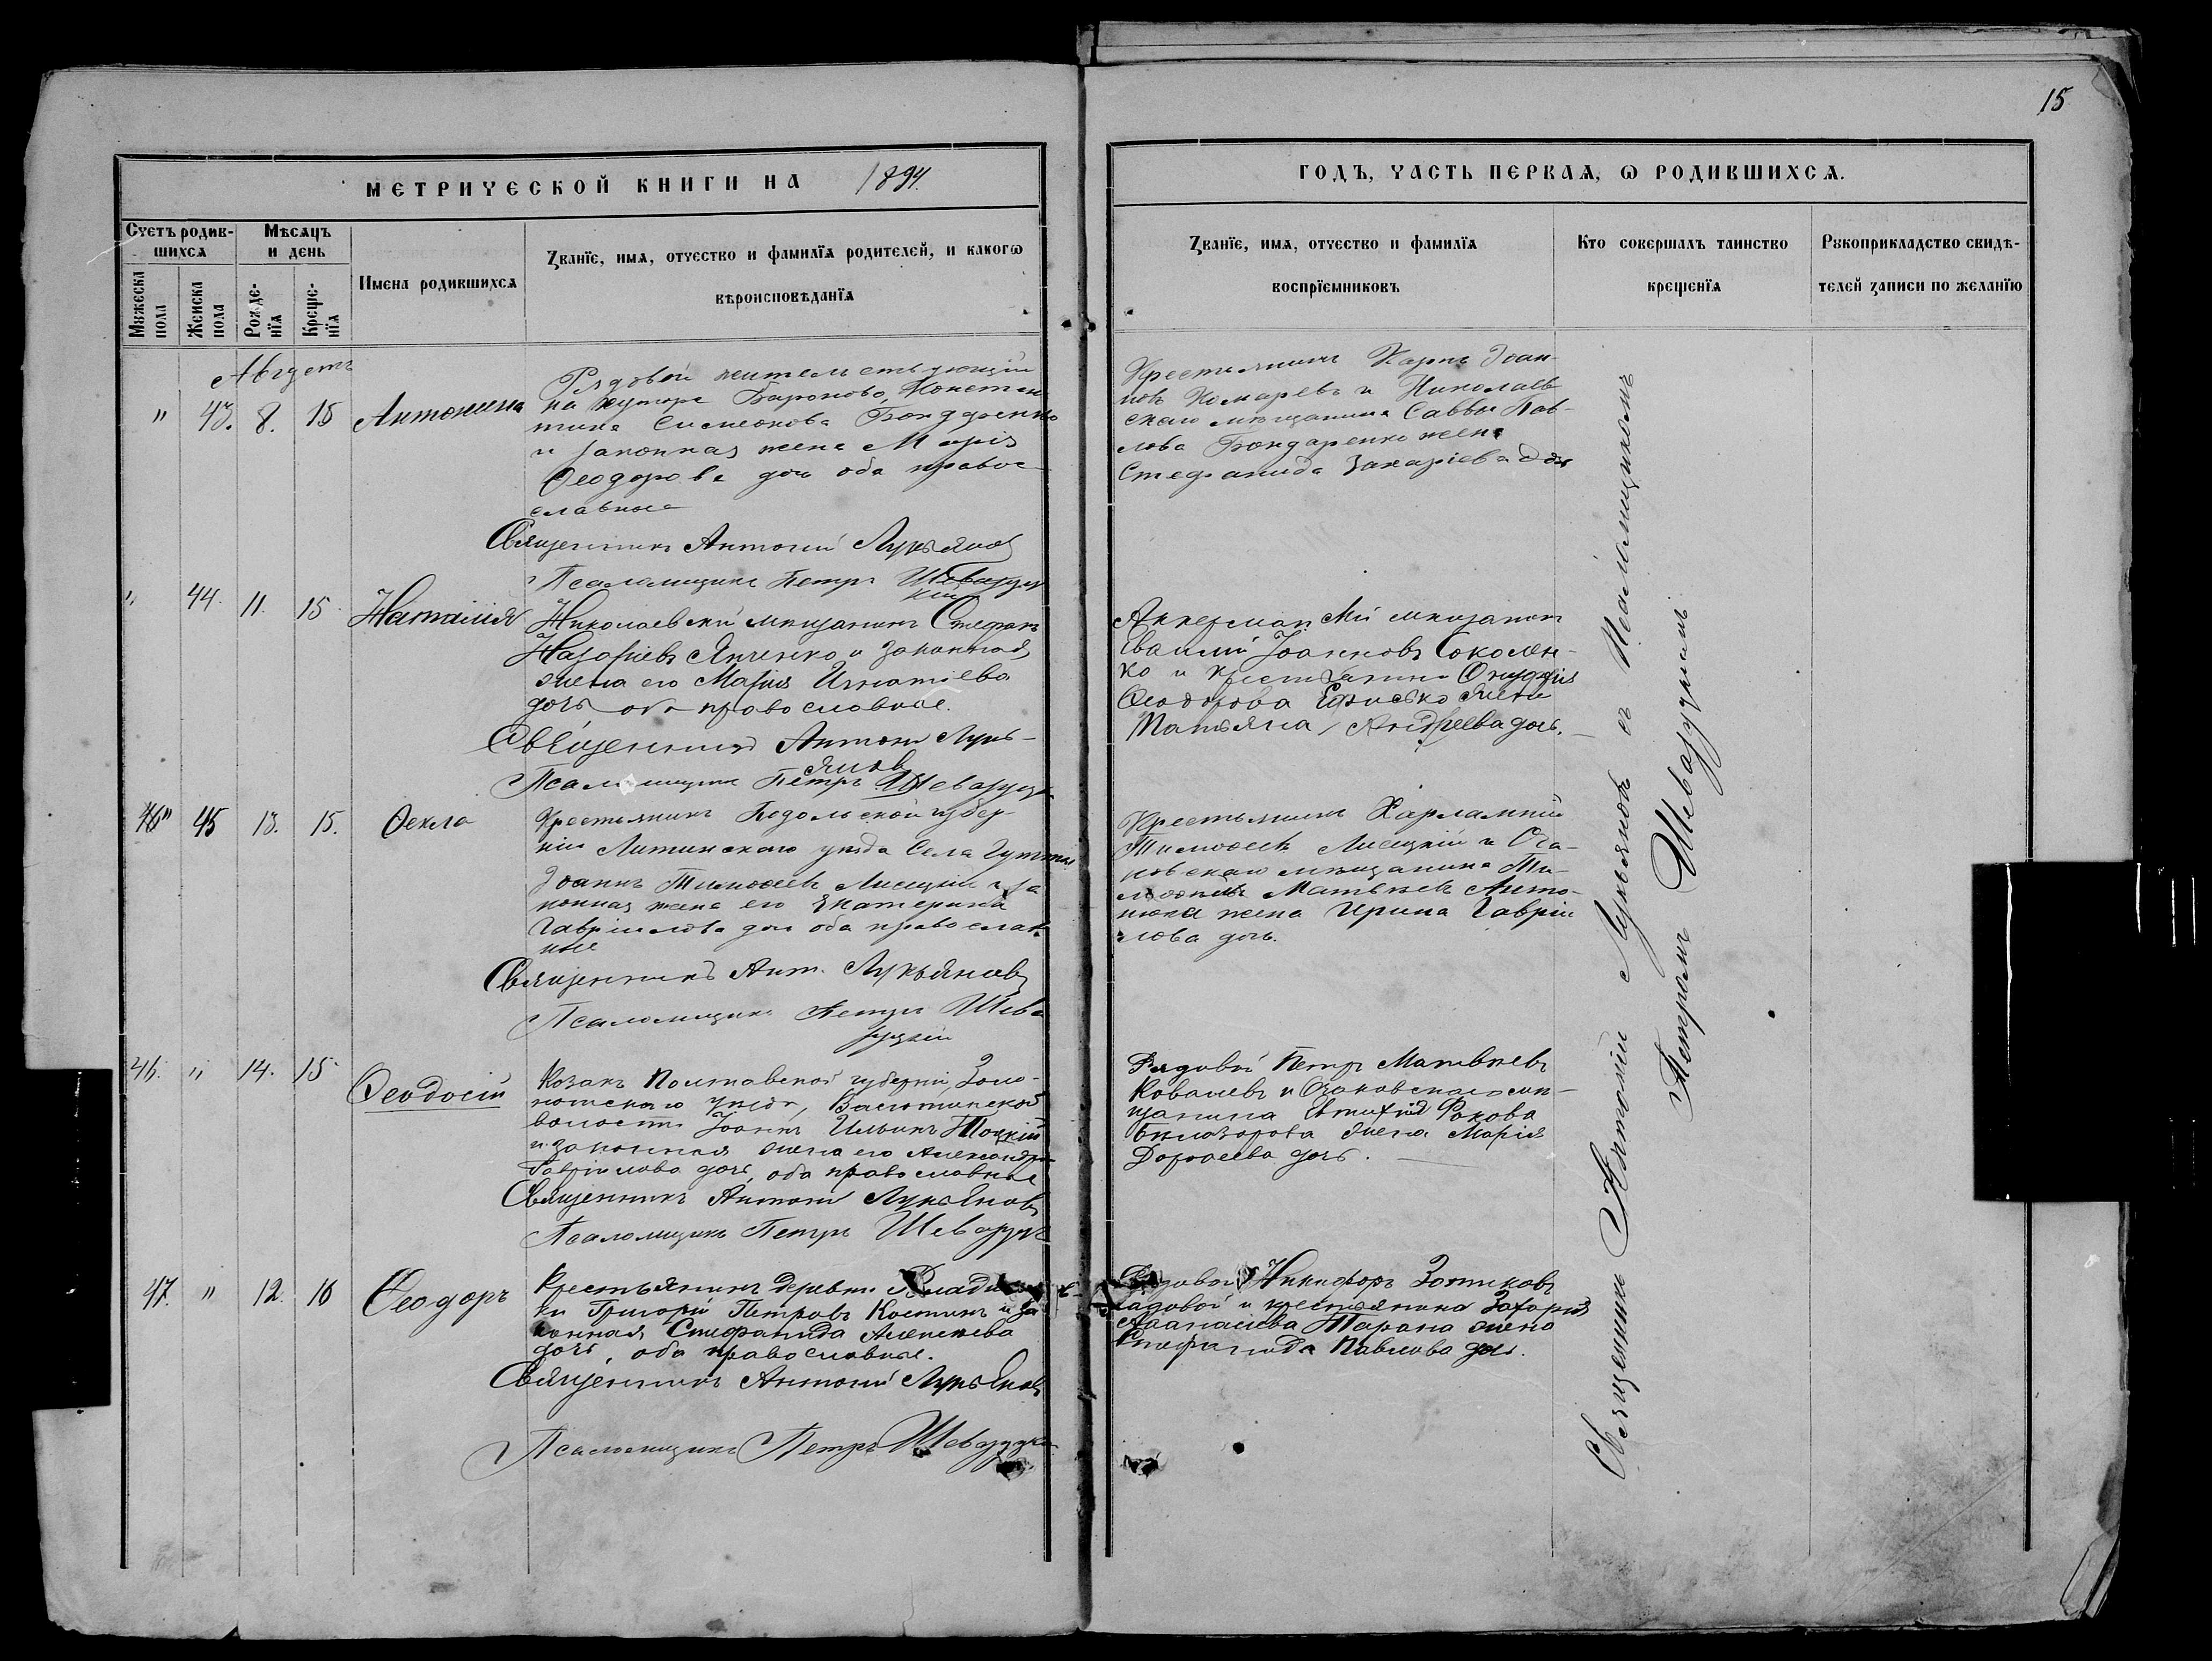 15
МЕТРИЧЕСКОЙ КНИГИ НА 1894
ГОДЪ, ЧАСТЬ ПЕРВАѦ, Ѡ РОДИВШИХСѦ.
Счетъ родив-
шихсѧ
Мужеска пола
Женска пола
Мѣсѧцъ
и день
Рожде-
нїѧ
Креще-
нїѧ
Имена родившихсѧ
Званїе, имѧ, отчество и фамилїѧ родителей, и какогѡ
вѣроисповѣданїѧ
Званїе, имѧ, отчество и фамилїѧ
воспрїемниковъ
Кто совершалъ таинство
крещенїѧ
Рукоприкладство свидѣ-
телей записи по желанїю
Августъ
" 43. 8. 15 Антонина
Рядовой жительствующій
на хуторе Бароново, Констан
тинъ Симеонова Бондаренко
и законная жена Марія
Ѳеодорова дочь оба право-
славные
Священникъ Антоній Лукьянов
Псаломщикъ Петръ Шеваруц
кій
Крестьянинъ Карпъ Іоан-
новъ Комаревъ и Николаев
скаго мѣщанина Саввы Пав-
лова Бондаренко жена
Стефанида Захаріева дочь
" 44. 11. 15. Наталия
Николаевскій мѣщанинъ Стефанъ
Назаріевъ Янченко и законная
жена его Марія Игнатіева
дочь оба православные.
Священникъ Антоній Лукь-
яновъ
Псаломщикъ Петръ Шеваруц
Аккерманскій мѣщанинъ
Іоанновъ Соколен-
ко и
Ѳеодорова жена
Татьяна Андреева дочь.
" 45 13. 15. Ѳекла
Крестьянинъ Подольской губер-
ніи Литинскаго уѣзда Села
Іоаннъ Тимоѳеевъ Лисецкій и за
конная жена его Екатерина
Гавріилова дочь оба православ
ные
Священникъ Ант. Лукьяновъ
Псаломщикъ Петръ Шева
руцкій
Крестьянинъ Харлампій
Тимоѳеевъ Лисецкій и Оча-
ковскаго мѣщанина Ти-
моѳея Матвѣевъ Анто-
нюка жена Ирина Гавріи
лова дочь.
46. " 14. 15. Ѳеодосій
Козакъ Полтавской губерніи, Золо-
ношскаго уѣзда,
волости Іоаннъ Ильинъ
и законная жена его Александра
Гавріилова дочь, оба православные
Священникъ Антоній Лукьяновъ
Псаломщикъ Петръ Шеваруц
Рядовой Петръ Матвѣевъ
Ковалевъ и Очаковскаго мѣ-
щанина Евтихія Фокова
Бѣлозорова жена Марія
Дороѳеева дочь.
47. " 12. 16 Ѳеодоръ
Крестьянинъ деревни
Григорій Петровъ Костинъ и за
конная Стефанида Алексеева
дочь, оба православные.
Священникъ Антоній Лукьяновъ
Псаломщикъ Петръ Шеваруцкі
Рядовой Никифоръ Зотиковъ
и крестьянина Захарія
Аѳанасіева Тарана жена
Стефанида Павлова дочь.
Священникъ Антоній Лукьяновъ съ Псаломщикомъ
Петромъ Шеваруцкимъ